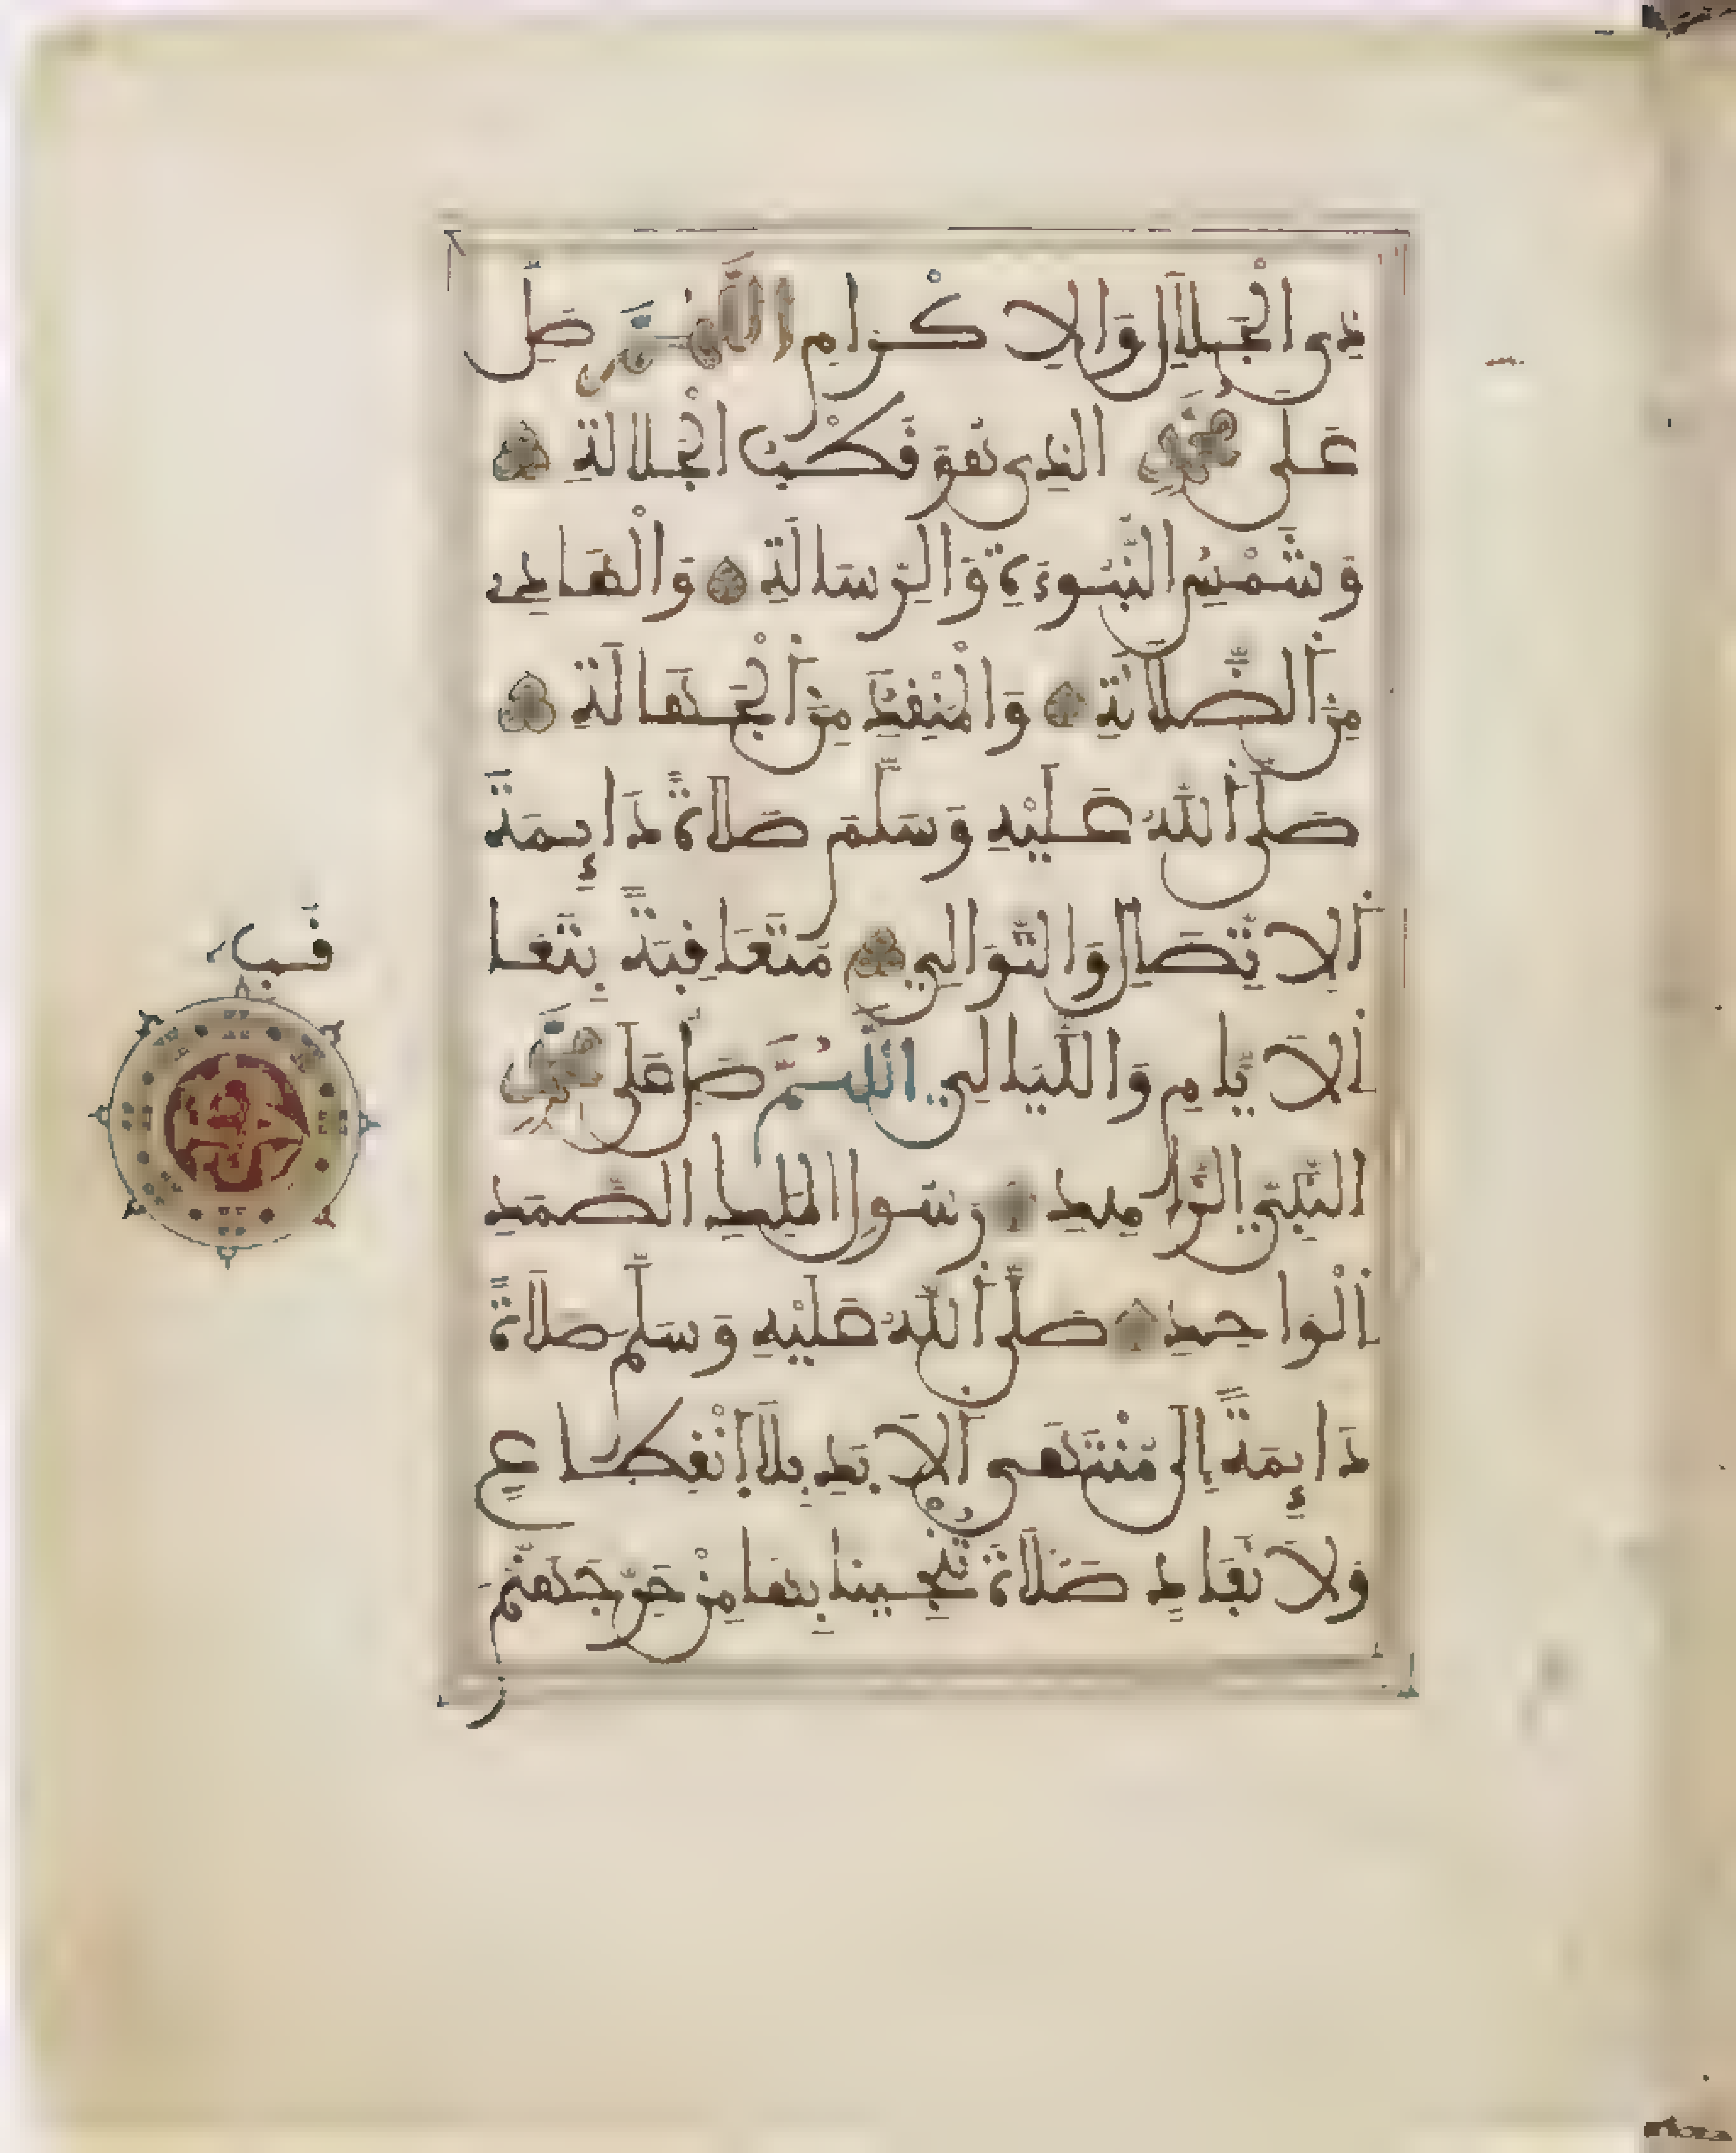 ذِي الْجَلَالِ وَالْإِكْرَامِ اللَّهُمَّ صَلِّ
عَلَى مُحَمَّدٍ الَّذِي هُوَ قُطْبُ الْجَلَالَةِ
وَشَمْسُ النُّبُوءَةِ وَالرِّسَالَةِ وَالْهَادِي
مِنَ الضَّلَالَةِ وَالْمُنْقِذُ مِنَ الْجَهَالَةِ
صَلَّى اللَّهُ عَلَيْهِ وَسَلَّمَ صَلَاةً دَائِمَةَ
الِاتِّصَالِ وَالتَّوَالِي مُتَعَاقِبَةً بِتَعَا
قُبِ
الْأَيَّامِ وَاللَّيَالِي اللَّهُمَّ صَلِّ عَلَى مُحَمَّدٍ
النَّبِيِّ الزَّاهِدِ رَسُولِ الْمَلِكِ الصَّمَدِ
الْوَاحِدِ صَلَّى اللَّهُ عَلَيْهِ وَسَلَّمَ صَلَاةً
دَائِمَةً إِلَى مُنْتَهَى الْأَبَدِ بِلَا انْقِطَاعٍ
وَلَا نَفَادٍ صَلَاةً تُنْجِينَا بِهَا مِنْ حَرِّ جَهَنَّمَ